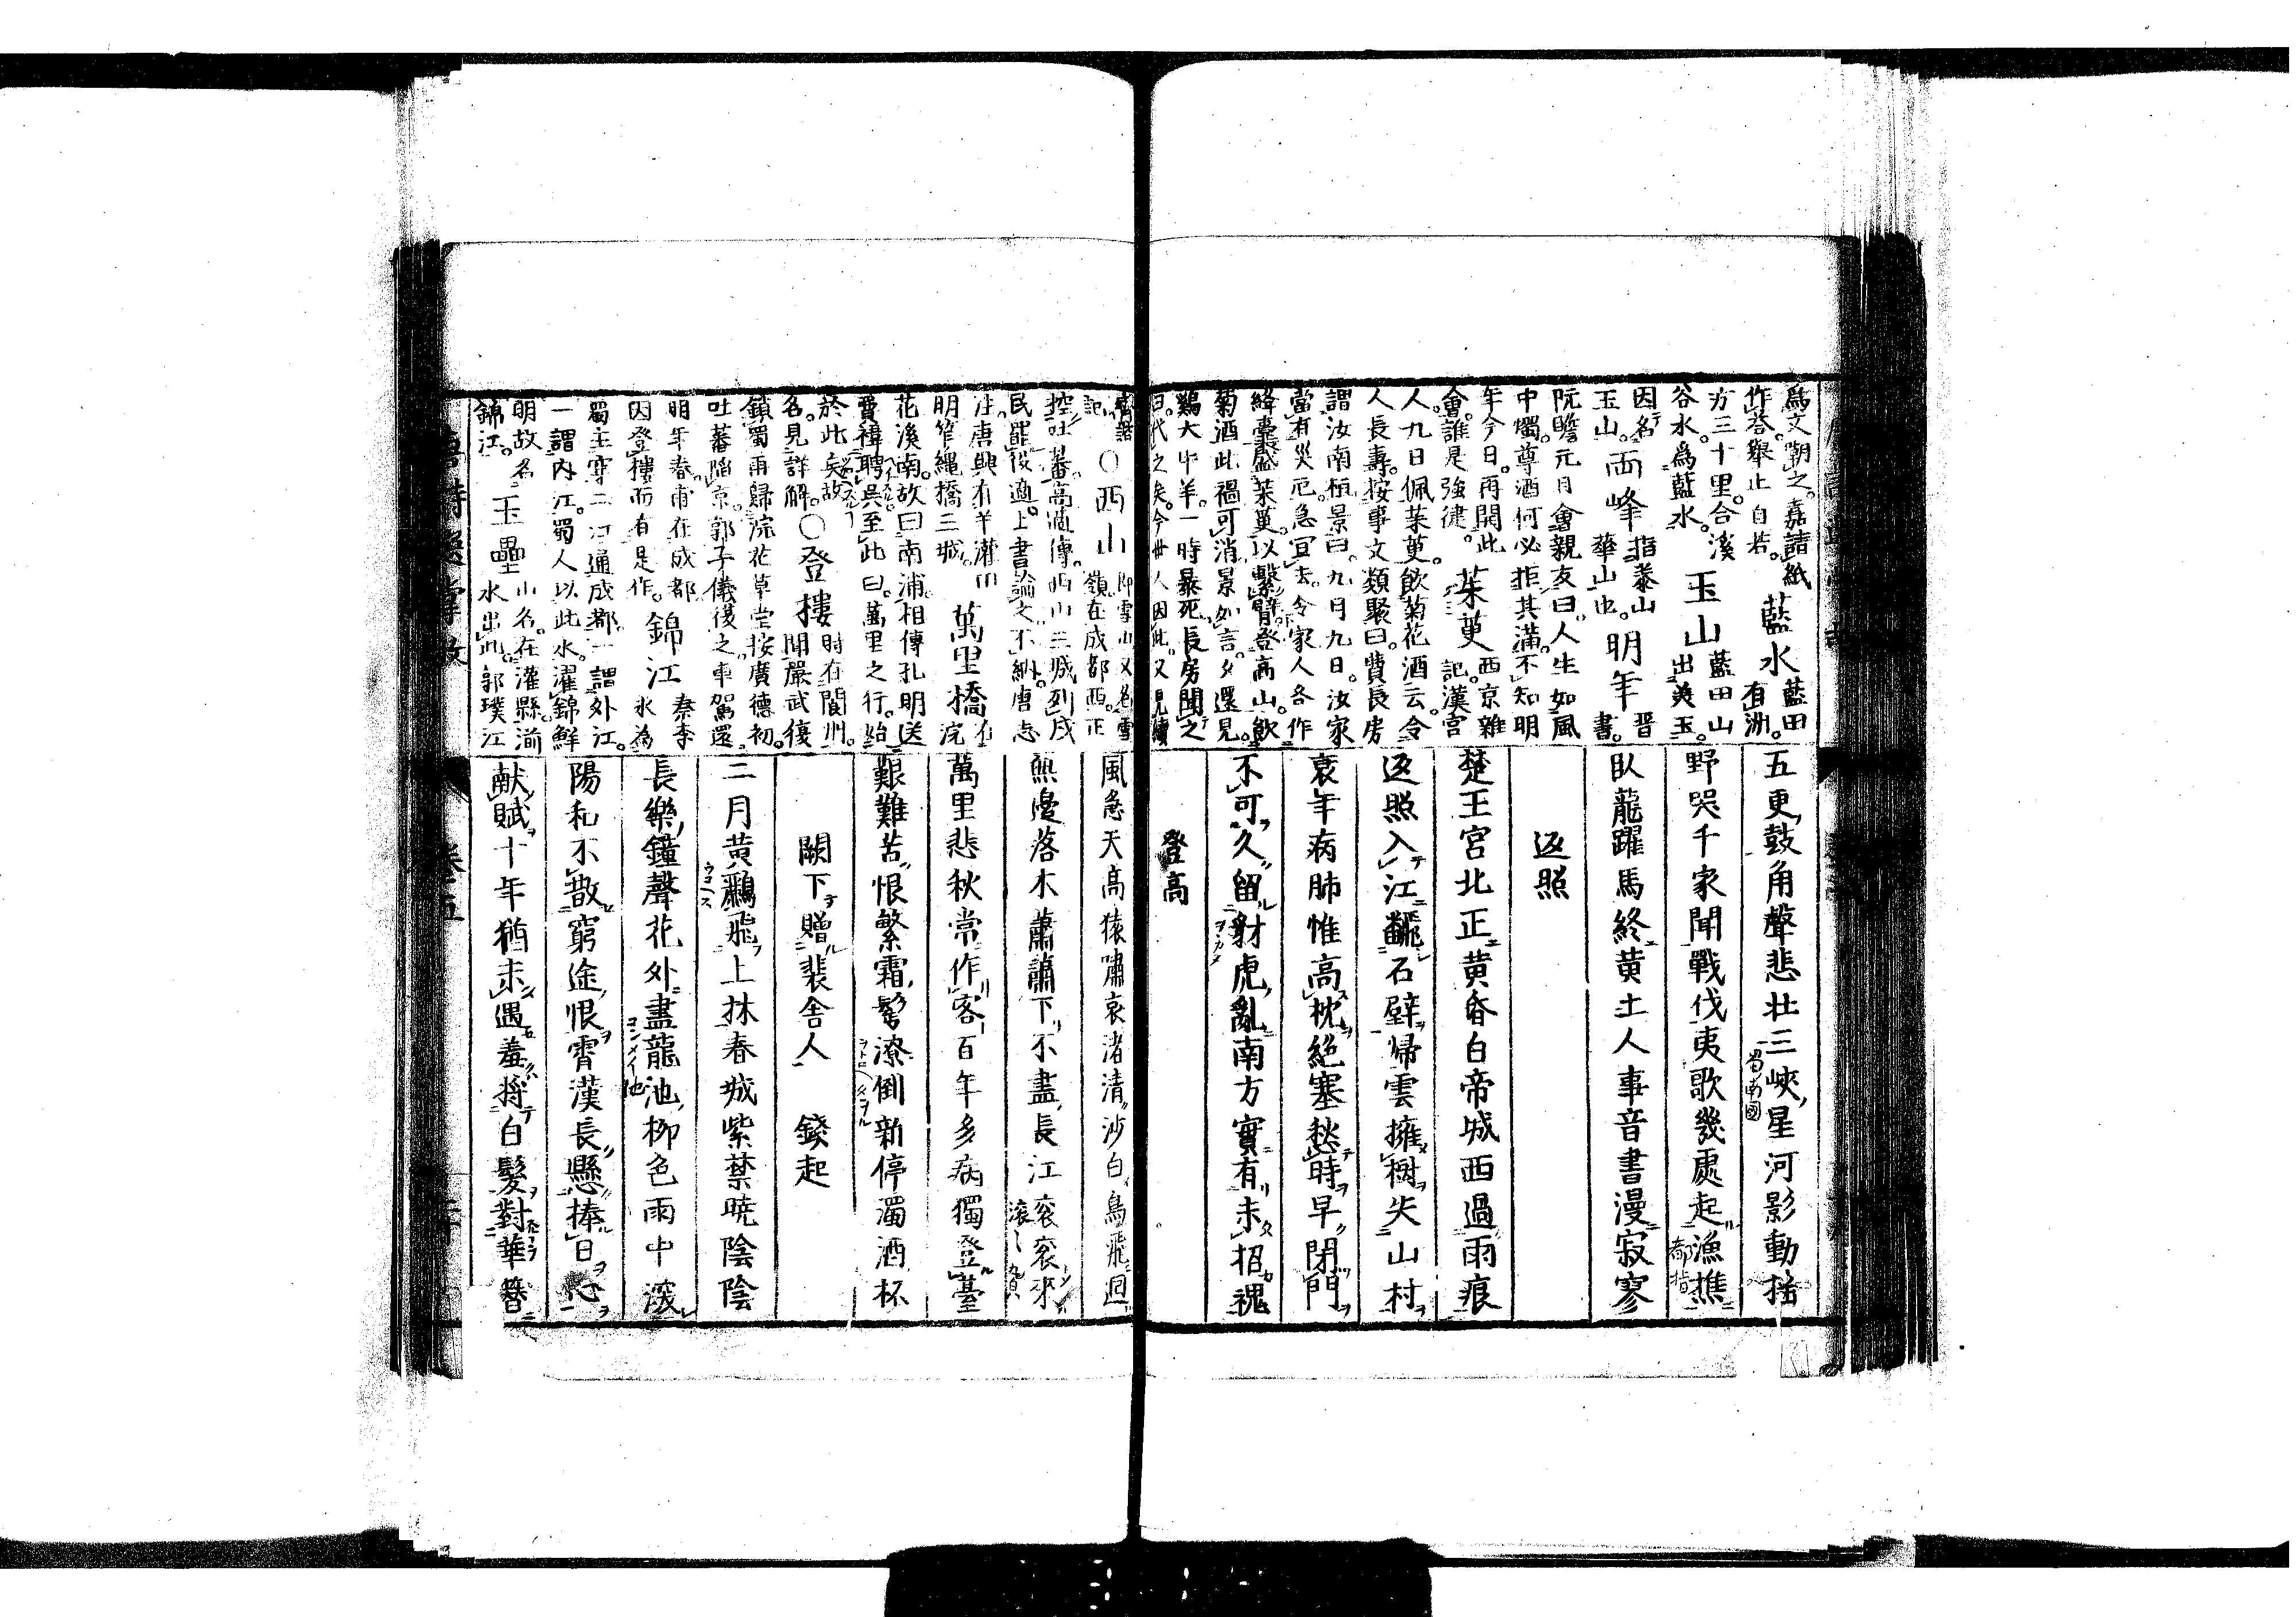 爲文嘲之。嘉請紙
作答。舉止自若。
藍水
藍田
有洲。
方三十里。合溪
谷水。爲藍水。
玉山
藍田山
出美玉。
因名
玉山。
兩峰
指泰山
華山也。
明年
晋
書。
阮瞻元日會親友曰。人生如風
中燭。尊酒何必拒其滿。不知明
年今日。再開此
會。誰是強健。
茱萸
西京雜
記。漢宮
人。九日佩茱萸。飲菊花酒云。令
人長壽。按事文類聚曰。費長房
謂汝南桓景曰。九月九日。汝家
當有災厄。急宜去。令家人各作
絳囊。盛茱萸。以繫臂。登高山。飲
菊酒。此禍可消。景如言。夕還見
鷄犬牛羊。一時暴死。長房聞之
曰。代之矣。今世人因此。又見續
齊諧
記。
○西山
即雪山又名雪
嶺。在成都西。正
控吐蕃。高適傳。西山三城列戍
民罷役。適上書論之。不納。唐志
注。唐興有羊灌田
明笮繩橋三城。
萬里橋
在
浣
花溪南。故曰南浦。相傳孔明送
費禕聘吳。至此曰。萬里之行。始
於此矣。故
名。見詳解。
○登樓
時在閬州。
聞嚴武復
鎮蜀。而歸浣花草堂。按廣德初。
吐蕃陷京。郭子儀復之。車駕還。
明年春。甫在成都。
因登樓而有是作。
錦江
秦李
氷爲
蜀王。穿二江通成都。一謂外江。
一謂內江。蜀人以此水。濯錦鮮
明。故名
錦江。
玉壘
山名。在灌縣。湔
水出此。郭璞江
五更鼓角聲悲壯三峽星河影動搖
野哭千家聞戰伐夷歌幾處起漁樵
臥龍躍馬終黄土人事音書漫寂寥
返照
楚王宮北正黄昏白帝城西過雨痕
返照入江飜石壁歸雲擁樹失山村
衰年病肺惟高枕絕塞愁時早閉門
不可久留豺虎亂南方實有未招魂
登高
風急天高猿嘯哀渚清沙白鳥飛迴
無邊落木蕭蕭下不盡長江衮衮來
萬里悲秋常作客百年多病獨登臺
艱難苦恨繁霜鬢潦倒新停濁酒杯
闕下贈裴舍人　錢起
二月黄鸝飛上林春城紫禁曉陰陰
長樂鐘聲花外盡龍池柳色雨中深
陽和不散窮途恨霄漢長懸捧日心
献賦十年猶未遇羞將白髮對華簪
卷五